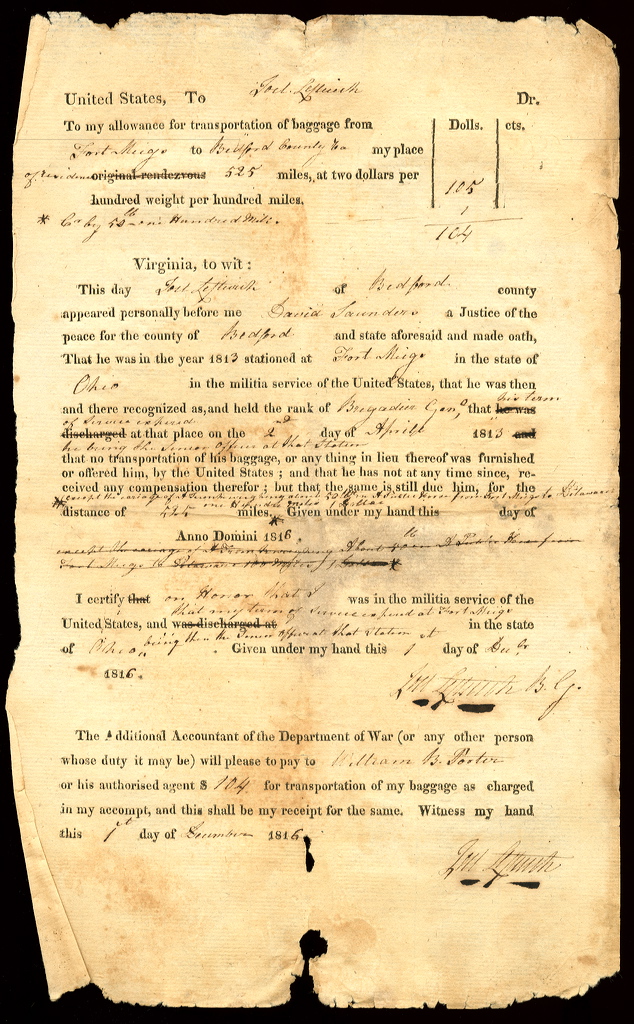 United States, To Joel Leftwich Dr.
To my allowance for transportation of baggage from Dolls. cts.
Fort Meigs to Bedford County Va my place
of residence original rendezvous 525 miles, at two dollars per
hundred weight per hundred miles. 105
* Cr by 50 lb one Hundred Mile. 1
104
Virginia, to wit:
This day Joel Leftwich of Bedford county
appeared personally before me David Saunders a Justice of the
peace for the county of Bedford and state aforesaid and made oath,
That he was in the year 1813 stationed at Fort Meigs in the state of
Ohio in the militia service of the United States, that he was then
his term
and there recognized as, and held the rank of Brigadier Genl, that he was
of service expired
discharged at that place on the 2nd day of April 1813 and
he being the Senior Officer at that Station
that no transportation of his baggage, or any thing in lieu thereof was furnished
or offered him, by the United States; and that he has not at any time since, re-
ceived any compensation therefor; but that the same is still due him, for the
* except the carriage of a Trunk weighing about 50 lb on A Public Horse from Fort Meigs to Delaware
one Hundred miles
distance of 525 miles. Given under my hand this day of
Anno Domini 1816.
except the carriage of a Trunk weighing About 50 lb on A Public Horse from
Fort Meigs to Delaware 100 Miles *
I certify that on Honor that I was in the militia service of the
that my term of Service expired at Fort Meigs
United States, and was discharged at in the state
being then the Senior Officer at that Station
of Ohio, . Given under my hand this 1st day of Decbr
1816.
Joel Leftwich B. G.
The Additional Accountant of the Department of War (or any other person
whose duty it may be) will please to pay to William B. Porter
or his authorised agent $ 104 for transportation of my baggage as charged
in my accompt, and this shall be my receipt for the same. Witness my hand
this 1st day of December 1816
Joel Leftwich